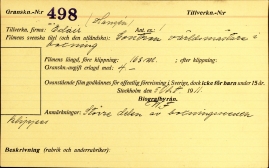 Granskn.-Nr 498 Tillverkn.-Nr
Tillverkn. firma: Ant. ex.:
Filmens svenska titel (och den utländska): världsmästare i
boxning
Filmens längd, före klippning: 165 m. ; efter klippning:
Granskn.-avgift erlagd med 4 —
Ovanstående film godkännes för offentlig förevisning i Sverige, dock icke för barn under 15 år.
Stockholm den 1911
Biografbyrån.
Anmärkningar: Större delen av boxningsscenen
klippes
Beskrivning (rubrik och underrubriker):